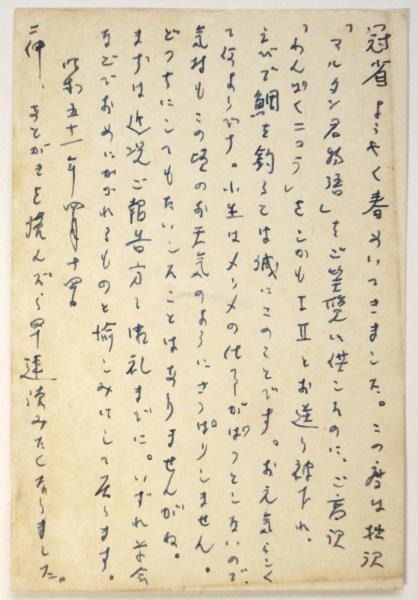 冠省 ようやく春めいてきました。この度は拙訳
「マルタン君物語」をご笑覧に供したのに、ご高訳
「わんぱくニコラ」をしかもⅠⅡとお送り被下れ、
えびで鯛を釣るとは誠にこのことです。お元気らしく
て何よりです。小生はメンメの仕事がぱっとしないので、
気持もこの頃のお天気のようにさっぱりしません。
どっちにしてもたいしたことはありませんがね。
まずは近況ご報告方々御礼までに。いずれ学会
などでおめにかかれるものと愉しみにして居ります。
昭和五十一年四月十四日
二伸、あとがきを読んだら早速読みたくなりました。